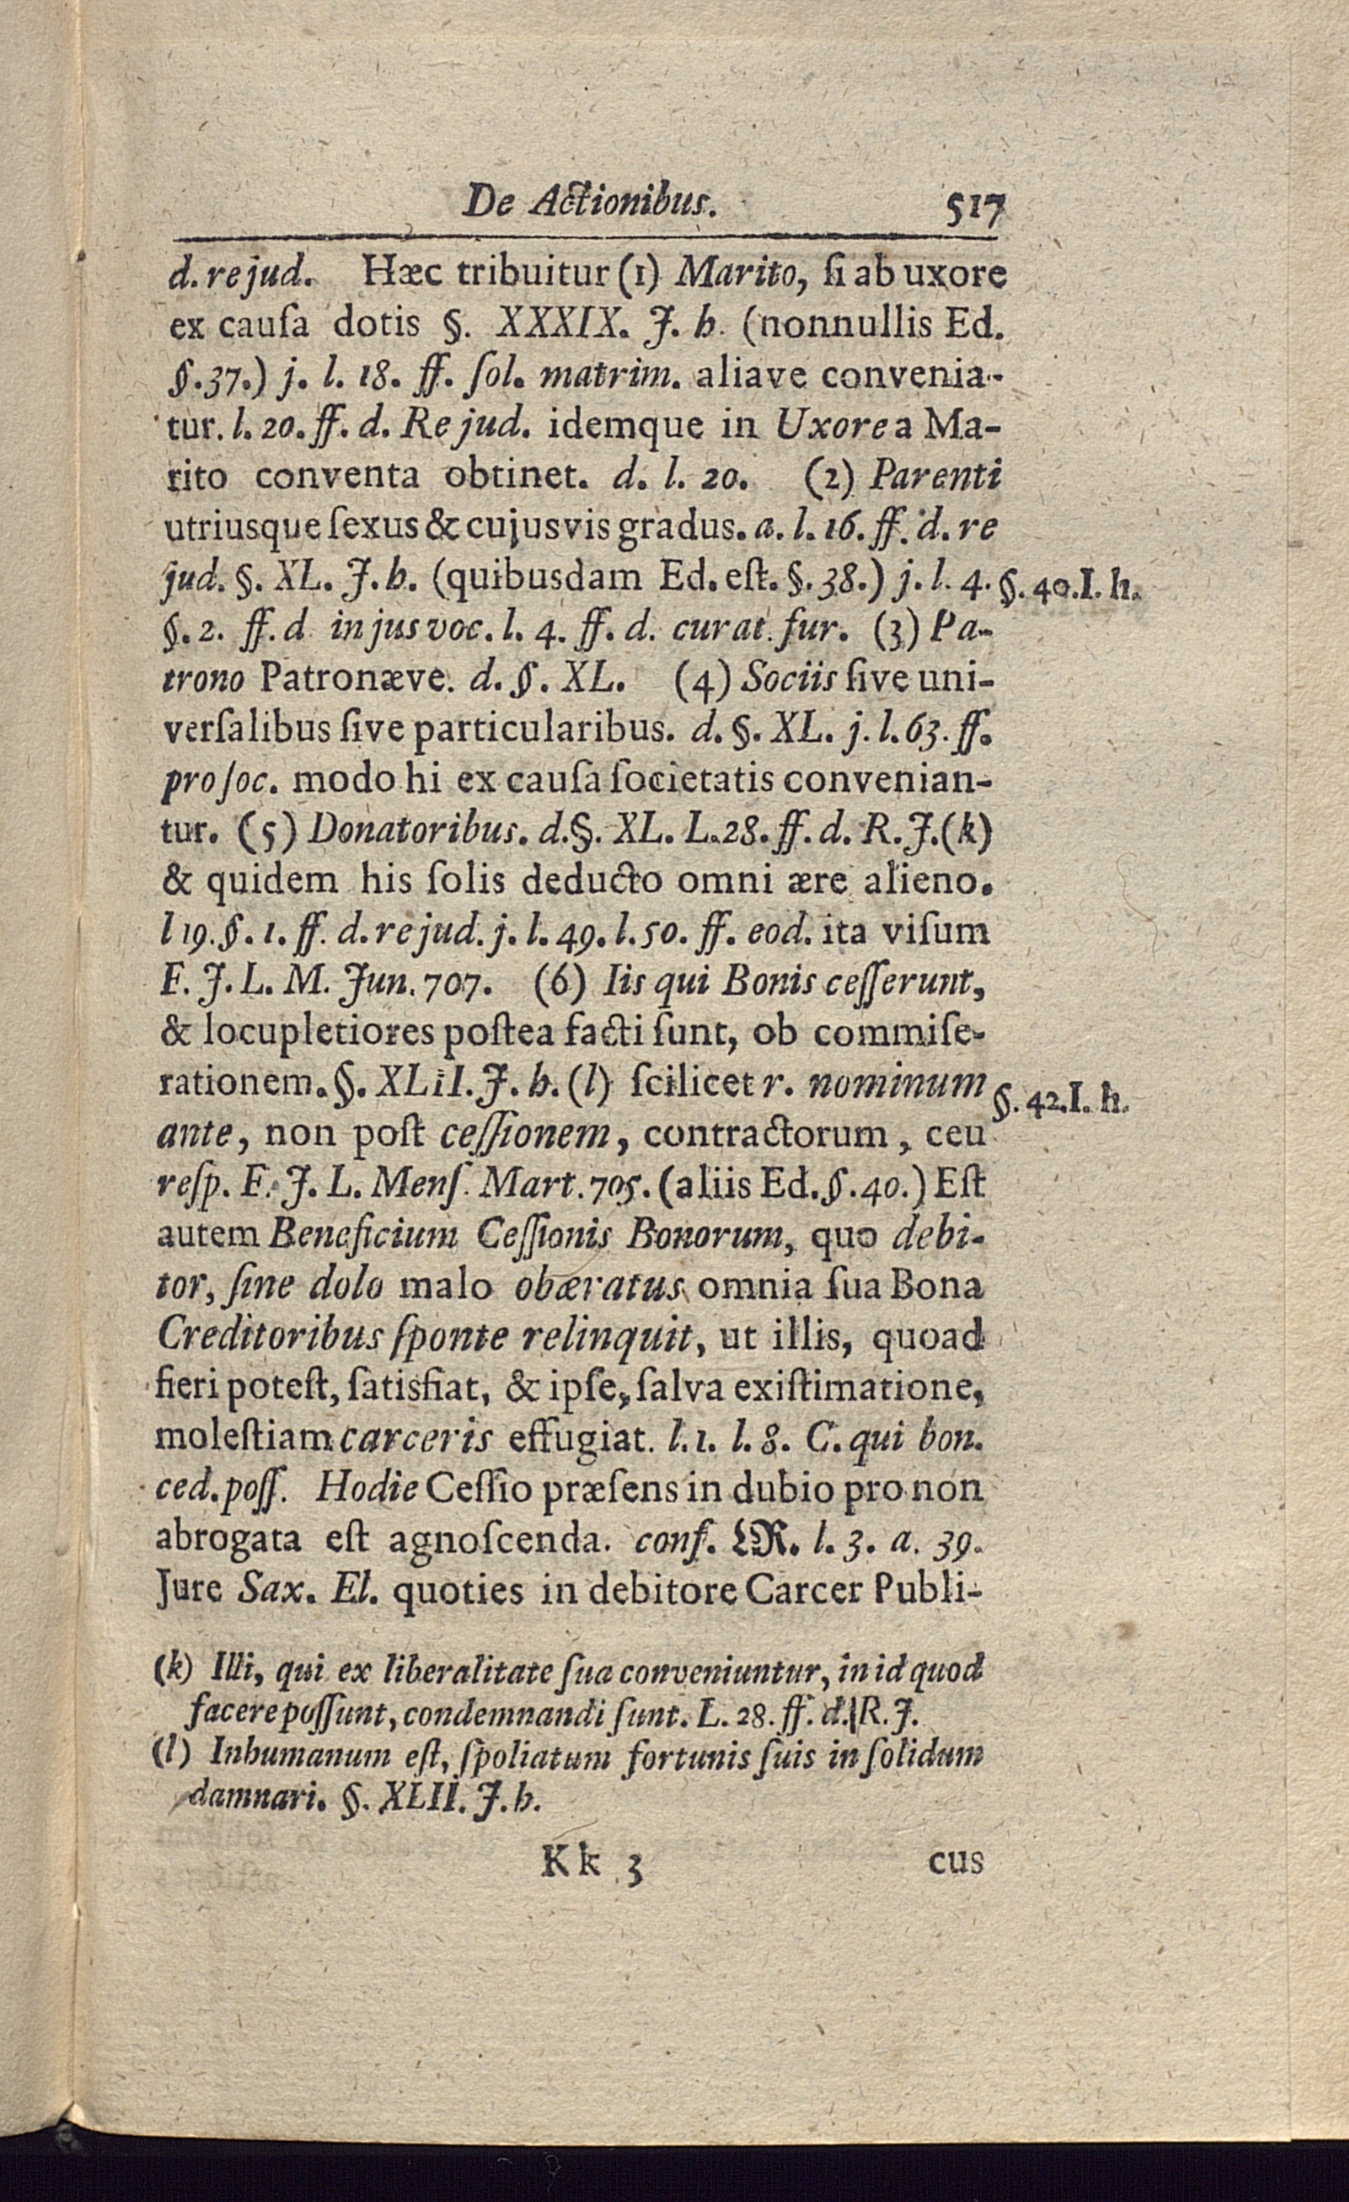 De Actionibus. 517
d. re jud. Hæc tribuitur (1) Marito, ſi ab uxore
ex cauſa dotis §. XXXIX. J. h. (nonnullis Ed.
§. 37.) j. l. 18. ff. ſol. matrim. aliave convenia-
tur. l. 20. ff. d. Re jud. idemque in Uxore a Ma-
rito conventa obtinet. d. l. 20. (2) Parenti
utriusque ſexus & cujusvis gradus. a. l. 16. ff. d. re
jud. §. XL. J. h. (quibusdam Ed. eſt. §. 38.) j. l. 4. §. 40. I. h.
§. 2. ff. d in jus voc. l. 4. ff. d. curat. fur. (3) Pa-
trono Patronæve. d. §. XL. (4) Sociis ſive uni-
verſalibus ſive particularibus. d. §. XL. j. l. 63. ff.
pro ſoc. modo hi ex cauſa ſocietatis convenian-
tur. (5) Donatoribus. d. §. XL. L. 28. ff. d. R. J. (k)
& quidem his ſolis deducto omni ære alieno.
l 19. §. 1. ff. d. re jud. j. l. 49. l. 50. ff. eod. ita viſum
F. J. L. M. Jun. 707. (6) Iis qui Bonis ceſſerunt,
& locupletiores poſtea facti ſunt, ob commiſe-
rationem. §. XLII. J. h. (l) ſcilicet r. nominum §. 42. I. h.
ante, non poſt ceſſionem, contractorum, ceu
reſp. F. J. L. Menſ. Mart. 705. (aliis Ed. §. 40.) Eſt
autem Beneficium Ceſſionis Bonorum, quo debi-
tor, ſine dolo malo obæratus omnia ſua Bona
Creditoribus ſponte relinquit, ut illis, quoad
fieri poteſt, ſatisfiat, & ipſe, ſalva exiſtimatione,
moleſtiam carceris effugiat. l. 1. l. 8. C. qui bon.
ced. poſſ. Hodie Ceſſio præſens in dubio pro non
abrogata eſt agnoſcenda. conf. LR. l. 3. a. 39.
Jure Sax. El. quoties in debitore Carcer Publi-
(k) Illi, qui ex liberalitate ſua conveniuntur, in id quod
facere poſſunt, condemnandi ſunt. L. 28. ff. d. R. J.
(l) Inhumanum eſt, ſpoliatum fortunis ſuis in ſolidum
damnari. §. XLII. J. h.
Kk 3 cus